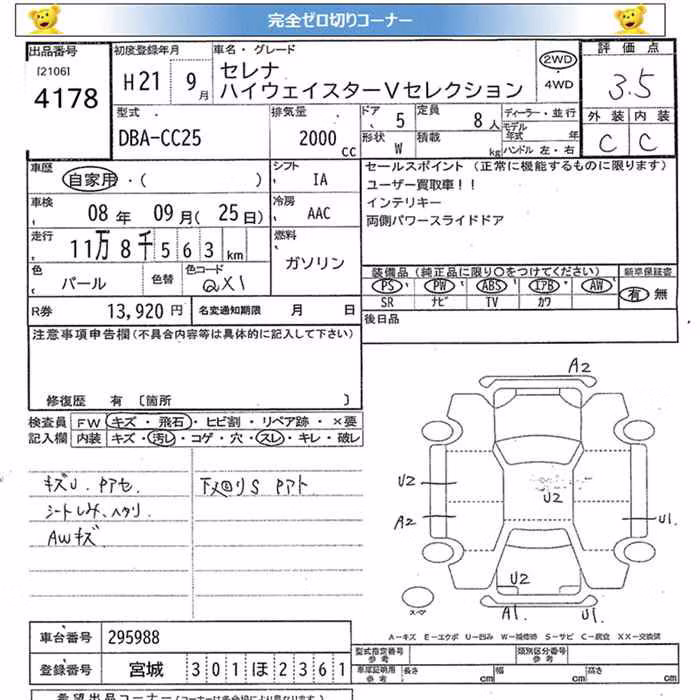 完全ゼロ切りコーナー
出品番号
[2106]
4178
初度登録年月
H21 9月
車名・グレード
セレナ
ハイウェイスターVセレクション
2WD
4WD
評価点
3.5
外装 内装
C C
型式
DBA-CC25
排気量
2000
cc
ドア
5
定員
8人
形状
W
積載
kg
ディーラー・並行
モデル年式 年
ハンドル 左・右
車歴
自家用・( )
シフト
IA
車検
08年 09月(25日)
冷房
AAC
走行
11万8千563km
燃料
ガソリン
色
パール
色替
色コード
QX1
R券
13,920円
名変通知期限 月 日
セールスポイント(正常に機能するものに限ります)
ユーザー買取車!!
インテリキー
両側パワースライドドア
装備品(純正品に限り○をつけてください)
PS PW ABS エアB AW
SR ナビ TV カワ
新車保証書
有 無
後日品
注意事項申告欄(不具合内容等は具体的に記入して下さい)
修復歴 有 〔箇所 〕
検査員
記入欄
FW キズ・飛石・ヒビ割・リペア跡・×要
内装 キズ・汚レ・コゲ・穴・スレ・キレ・破レ
キズU. Pアセ.
シートしみ、ヘタリ
AWキズ
下廻りS Pアト
A2
U2
U2
A2
U1
U2
A1
U1
スペア
A-キズ E-エクボ U-凹み W-補修跡 S-サビ C-腐食 XX-交換済
車台番号
295988
登録番号
宮城 301ほ2361
型式指定番号
参考
類別区分番号
参考
車庫証明用
参考
長さ cm 幅 cm 高さ cm
希望出品コーナー